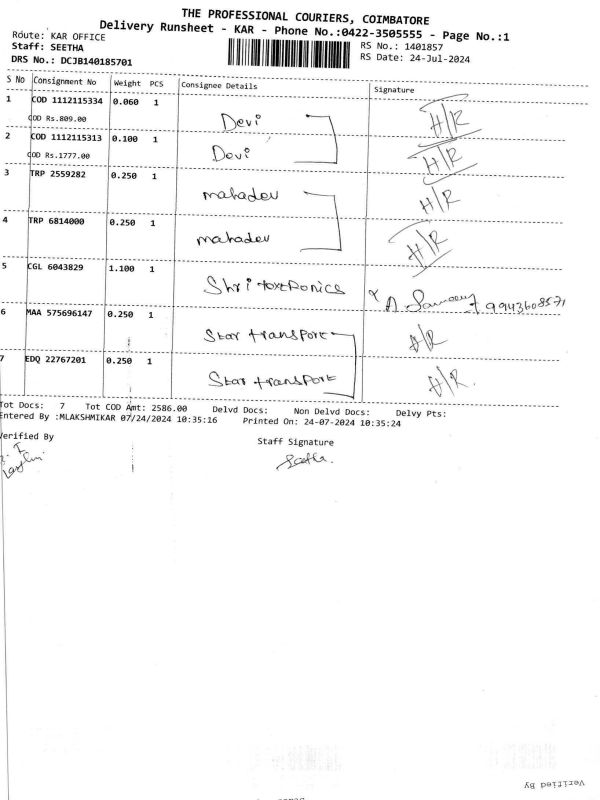 THE PROFESSIONAL COURIERS, COIMBATORE
Delivery Runsheet - KAR - Phone No.:0422-3505555 - Page No.:1
Route: KAR OFFICE RS No.: 1401857
Staff: SEETHA RS Date: 24-Jul-2024
DRS No.: DCJB140185701
S No Consignment No Weight PCS Consignee Details Signature
1 COD 1112115334 0.060 1 Devi H/R
COD Rs.809.00
2 COD 1112115313 0.100 1 Devi H/R
COD Rs.1777.00
3 TRP 2559282 0.250 1 mahadev H/R
4 TRP 6814000 0.250 1 mahadev H/R
5 CGL 6043829 1.100 1 Shri 9943608571
6 MAA 575696147 0.250 1 Star transport H/R
7 EDQ 22767201 0.250 1 Star transport H/R.
Tot Docs: 7 Tot COD Amt: 2586.00 Delvd Docs: Non Delvd Docs: Delvy Pts:
Entered By :MLAKSHMIKAR 07/24/2024 10:35:16 Printed On: 24-07-2024 10:35:24
Verified By Staff Signature
Verified By